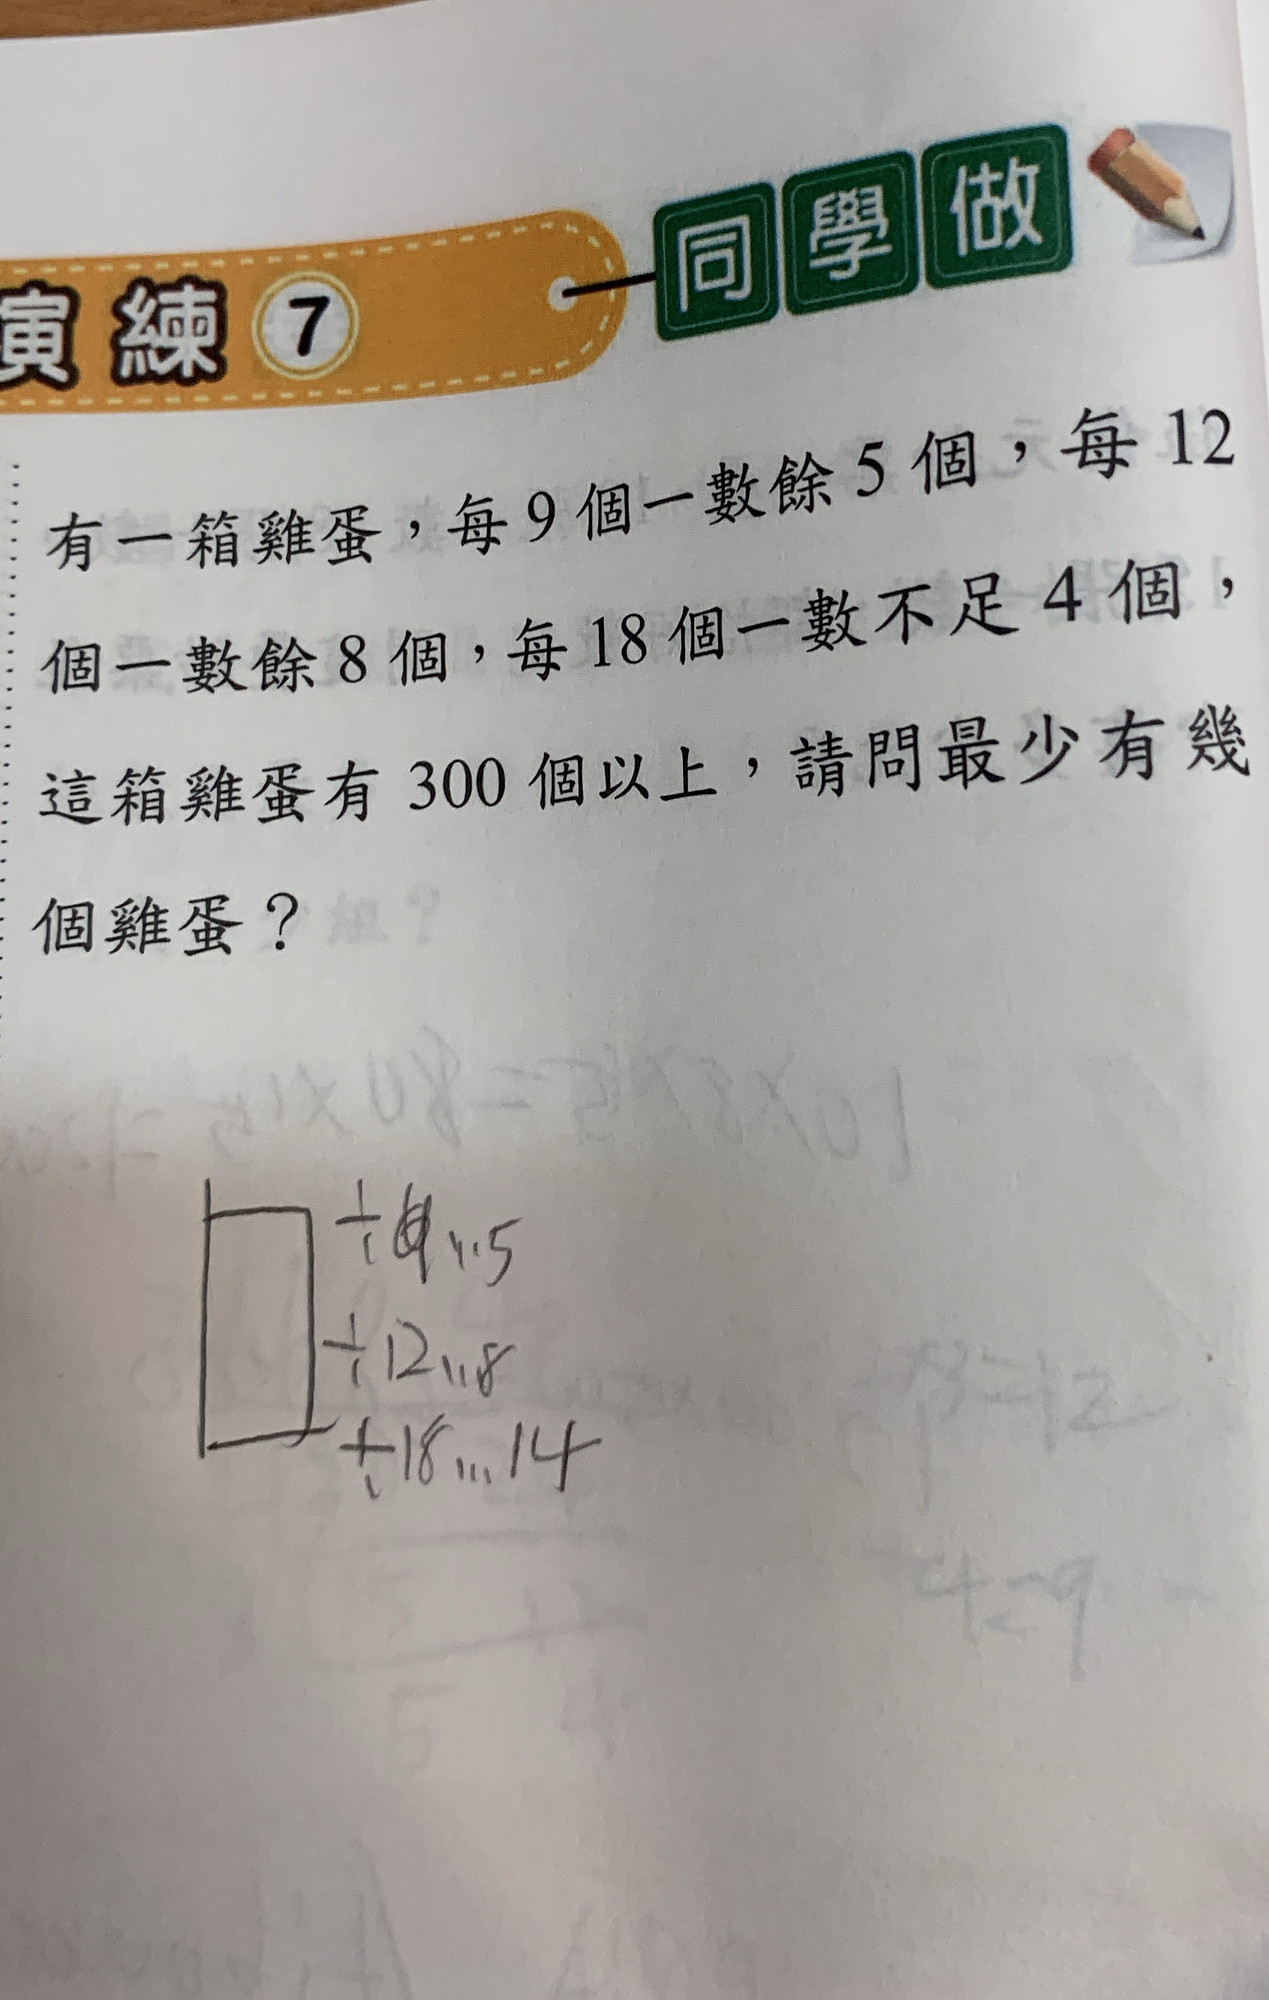 演練7 同學做
有一箱雞蛋，每9個一數餘5個，每12
個一數餘8個，每18個一數不足4個，
這箱雞蛋有300個以上，請問最少有幾
個雞蛋？
÷9…5
÷12…8
÷18…14